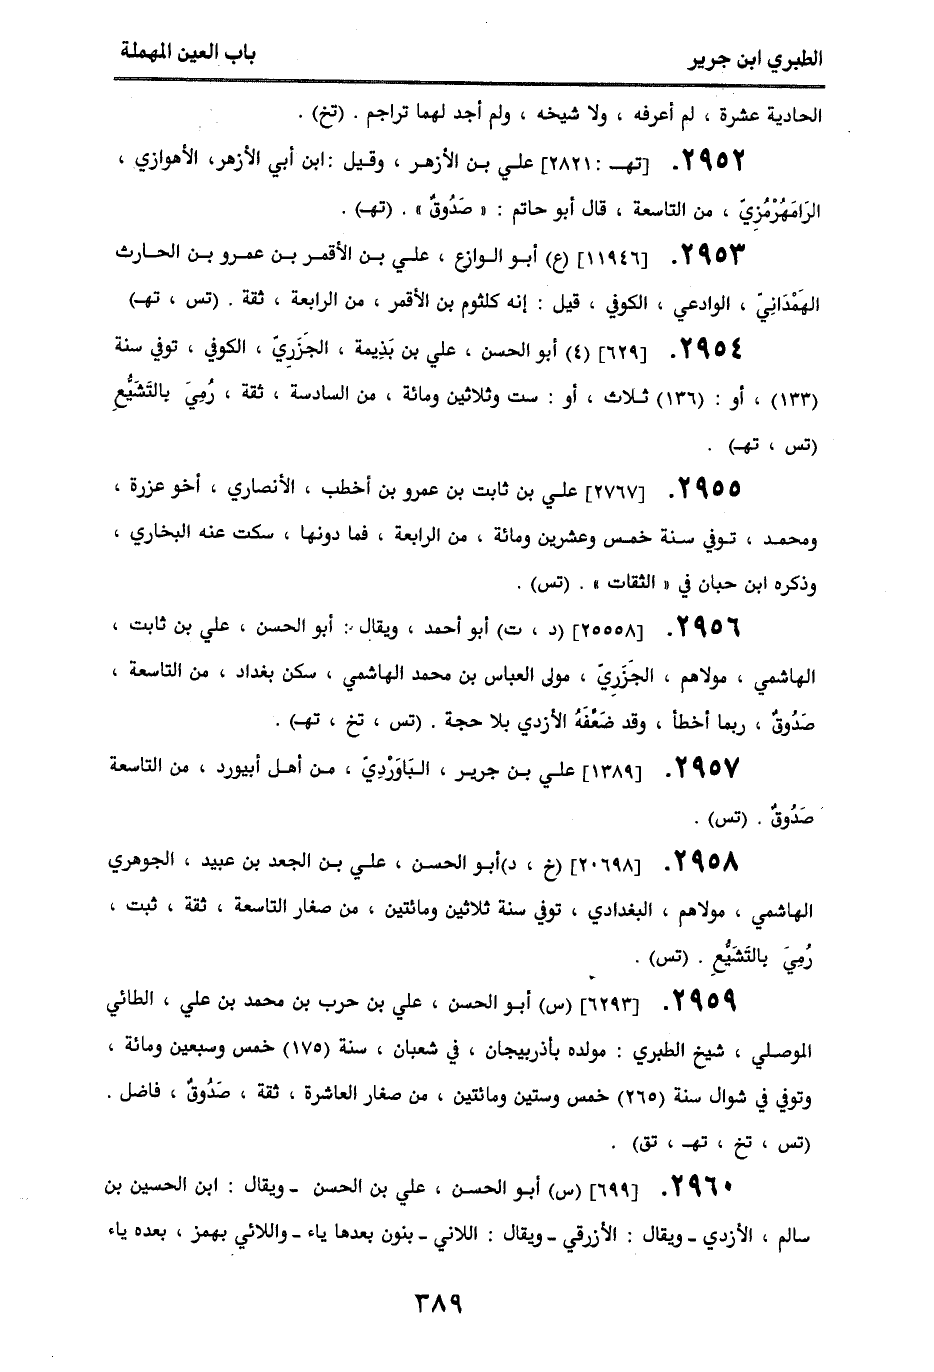 الطبري ابن جرير
باب العين المهملة
الحادية عشرة ، لم أعرفه ، ولا شيخه ، ولم أجد لهما تراجم . (تخ) .
٢٩٥٢. [تهـ : ٢٨٢١] علي بن الأزهر ، وقيل : ابن أبي الأزهر، الأهوازي ،
الرَامَهُرْمُزِيّ ، من التاسعة ، قال أبو حاتم : « صَدُوقٌ » . (تهـ) .
٢٩٥٣. [١١٩٤٦] (ع) أبو الوازع ، علي بن الأقمر بن عمرو بن الحارث
الهَمْدَانِيّ ، الوادعي ، الكوفي ، قيل : إنه كلثوم بن الأقمر ، من الرابعة ، ثقة . (تس ، تهـ)
٢٩٥٤. [٦٢٩] (٤) أبو الحسن ، علي بن بَذِيمة ، الجَزَرِيّ ، الكوفي ، توفي سنة
(١٣٣) ، أو : (١٣٦) ثلاث ، أو : ست وثلاثين ومائة ، من السادسة ، ثقة ، رُمِيَ بالتَشَيُّعِ
(تس ، تهـ) .
٢٩٥٥. [٢٧٦٧] علي بن ثابت بن عمرو بن أخطب ، الأنصاري ، أخو عزرة ،
ومحمد ، توفي سنة خمس وعشرين ومائة ، من الرابعة ، فما دونها ، سكت عنه البخاري ،
وذكره ابن حبان في « الثقات » . (تس) .
٢٩٥٦. [٢٥٥٥٨] (د ، ت) أبو أحمد ، ويقال : أبو الحسن ، علي بن ثابت ،
الهاشمي ، مولاهم ، الجَزَرِيّ ، مولى العباس بن محمد الهاشمي ، سكن بغداد ، من التاسعة ،
صَدُوقٌ ، ربما أخطأ ، وقد ضَعَّفَهُ الأزدي بلا حجة . (تس ، تخ ، تهـ) .
٢٩٥٧. [١٣٨٩] علي بن جرير ، البَاوَرْدِيّ ، من أهل أبيورد ، من التاسعة
صَدُوقٌ . (تس) .
٢٩٥٨. [٢٠٦٩٨] (خ ، د)أبو الحسن ، علي بن الجعد بن عبيد ، الجوهري
الهاشمي ، مولاهم ، البغدادي ، توفي سنة ثلاثين ومائتين ، من صغار التاسعة ، ثقة ، ثبت ،
رُمِيَ بالتَشَيُّعِ . (تس) .
٢٩٥٩. [٦٢٩٣] (س) أبو الحسن ، علي بن حرب بن محمد بن علي ، الطائي
الموصلي ، شيخ الطبري : مولده بأذربيجان ، في شعبان ، سنة (١٧٥) خمس وسبعين ومائة ،
وتوفي في شوال سنة (٢٦٥) خمس وستين ومائتين ، من صغار العاشرة ، ثقة ، صَدُوقٌ ، فاضل .
(تس ، تخ ، تهـ ، تق) .
٢٩٦٠. [٦٩٩] (س) أبو الحسن ، علي بن الحسن ـ ويقال : ابن الحسين بن
سالم ، الأزدي ـ ويقال : الأزرقي ـ ويقال : اللاني ـ بنون بعدها ياء ـ واللائي بهمز ، بعده ياء
٣٨٩